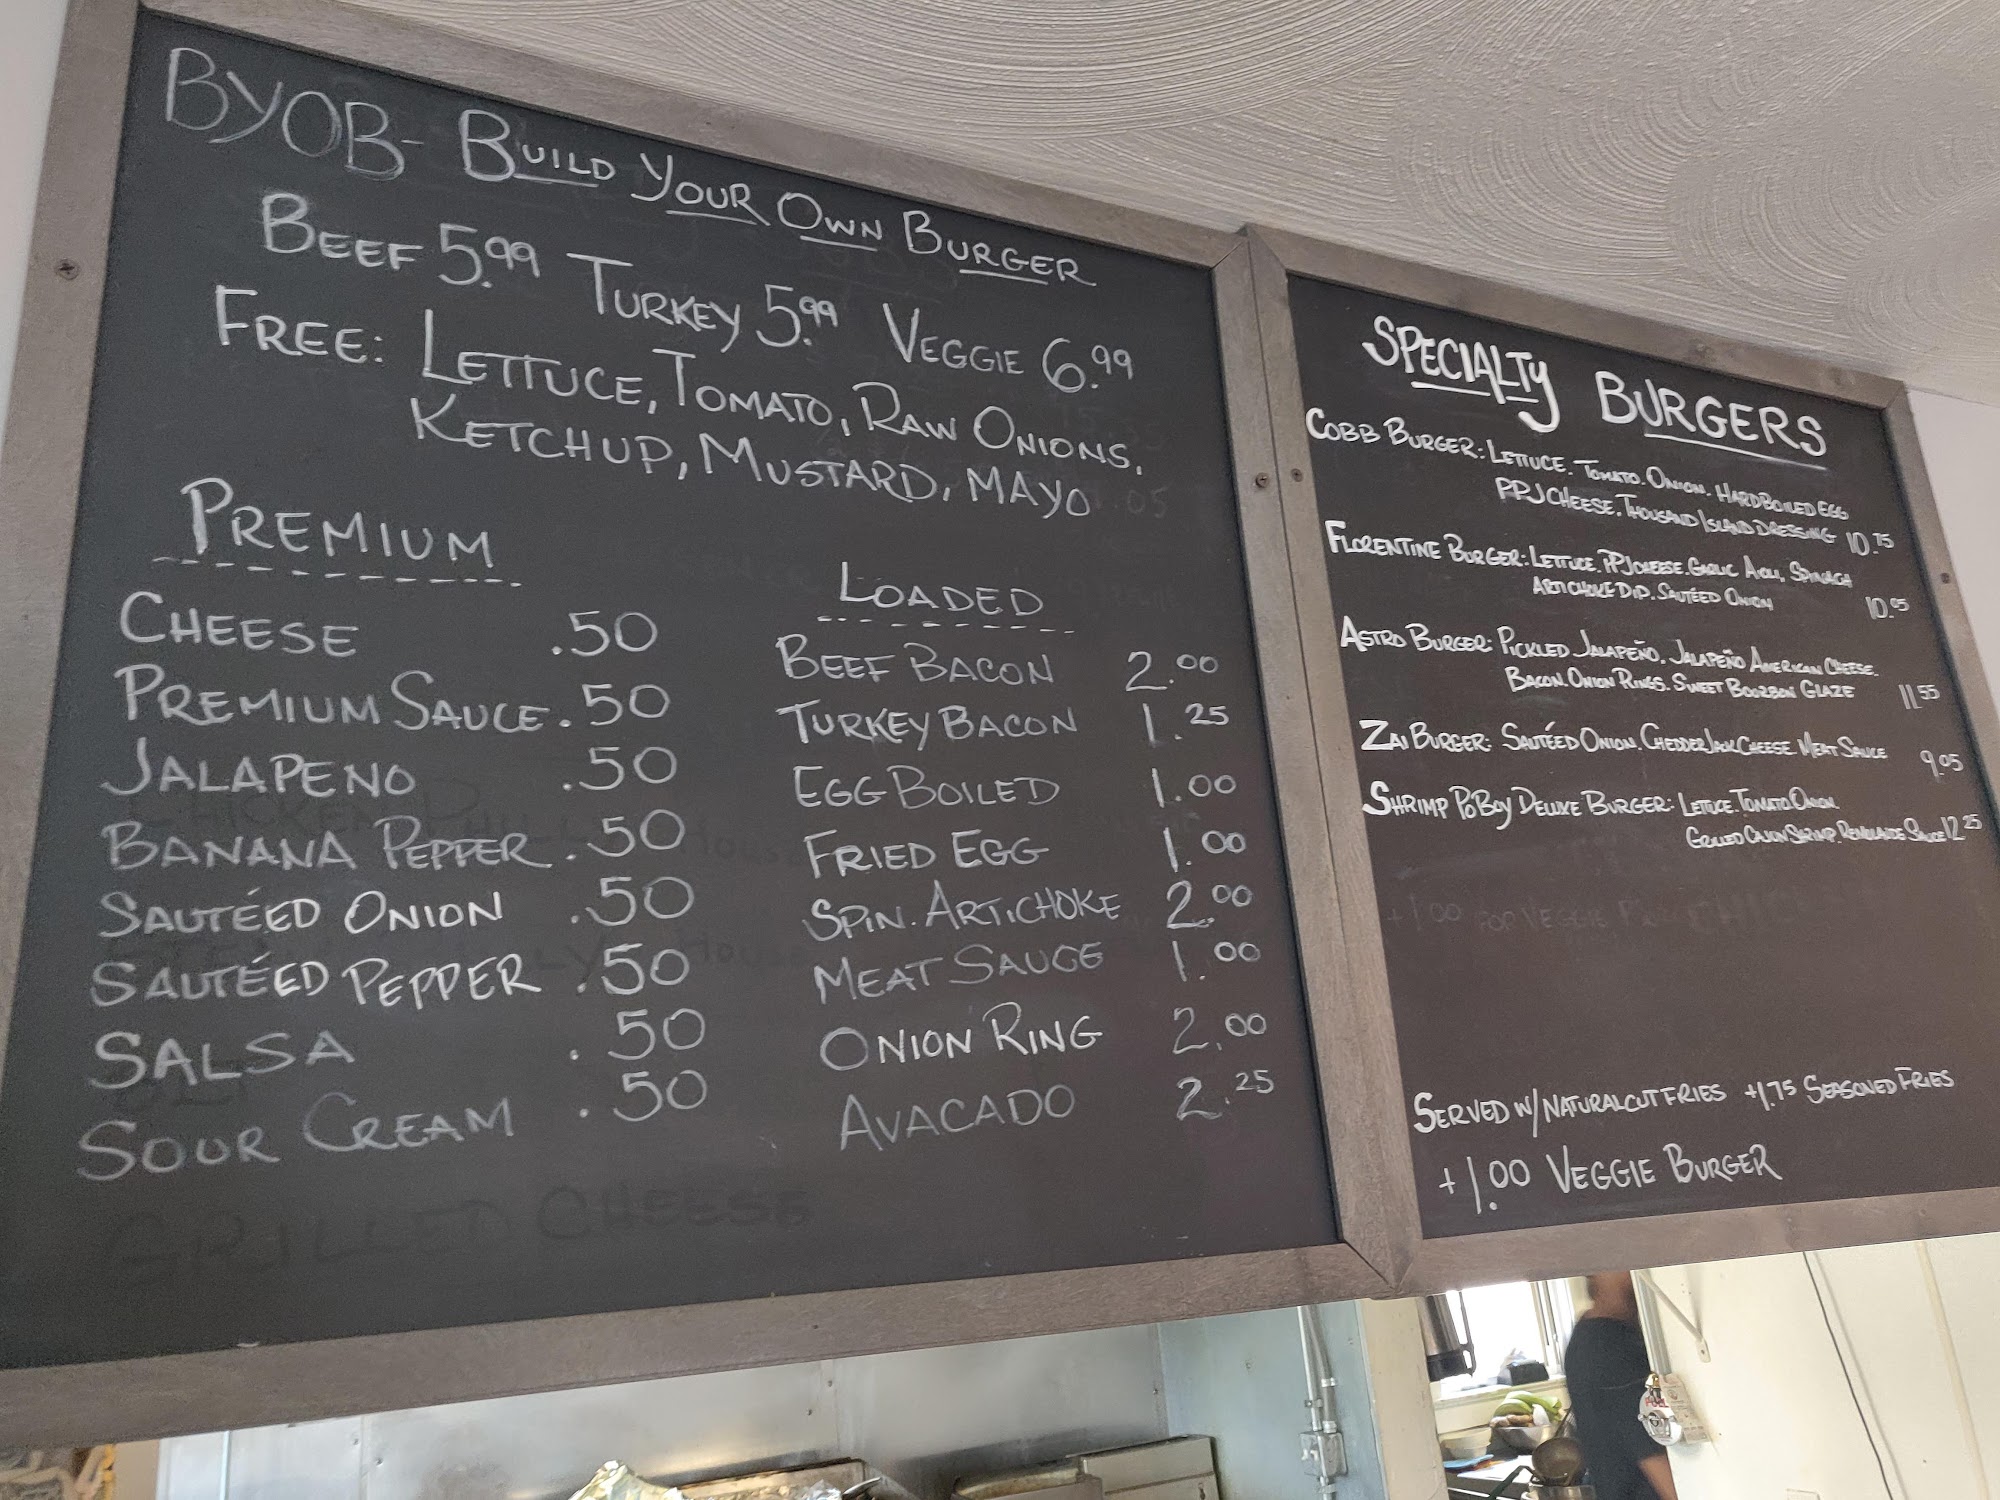 BYOB- BUILD YOUR OWN BURGER
BEEF 5.99 TURKEY 5.99 VEGGIE 6.99
FREE: LETTUCE, TOMATO, RAW ONIONS,
KETCHUP, MUSTARD, MAYO
PREMIUM
CHEESE .50
PREMIUM SAUCE .50
JALAPENO .50
BANANA PEPPER .50
SAUTÉED ONION .50
SAUTÉED PEPPER .50
SALSA .50
SOUR CREAM .50
GRILLED CHEESE
LOADED
BEEF BACON 2.00
TURKEY BACON 1.25
EGG BOILED 1.00
FRIED EGG 1.00
SPIN. ARTICHOKE 2.00
MEAT SAUCE 1.00
ONION RING 2.00
AVACADO 2.25
SPECIALTY BURGERS
COBB BURGER: LETTUCE. TOMATO. ONION. HARDBOILED EGG
PPJ CHEESE. THOUSAND ISLAND DRESSING 10.75
FLORENTINE BURGER: LETTUCE. PPJ CHEESE. GARLIC AIOLI, SPINACH
ARTICHOKE DIP. SAUTÉED ONION 10.05
ASTRO BURGER: PICKLED JALAPEÑO. JALAPEÑO AMERICAN CHEESE.
BACON. ONION RINGS. SWEET BOURBON GLAZE 11.55
ZAI BURGER: SAUTÉED ONION. CHEDDER JACK CHEESE MEAT SAUCE 9.05
SHRIMP PO BOY DELUXE BURGER: LETTUCE. TOMATO ONION.
GRILLED CAJUN SHRIMP. REMOULADE SAUCE 12.25
+1.00 FOR VEGGIE
SERVED W/ NATURAL CUT FRIES +1.75 SEASONED FRIES
+1.00 VEGGIE BURGER